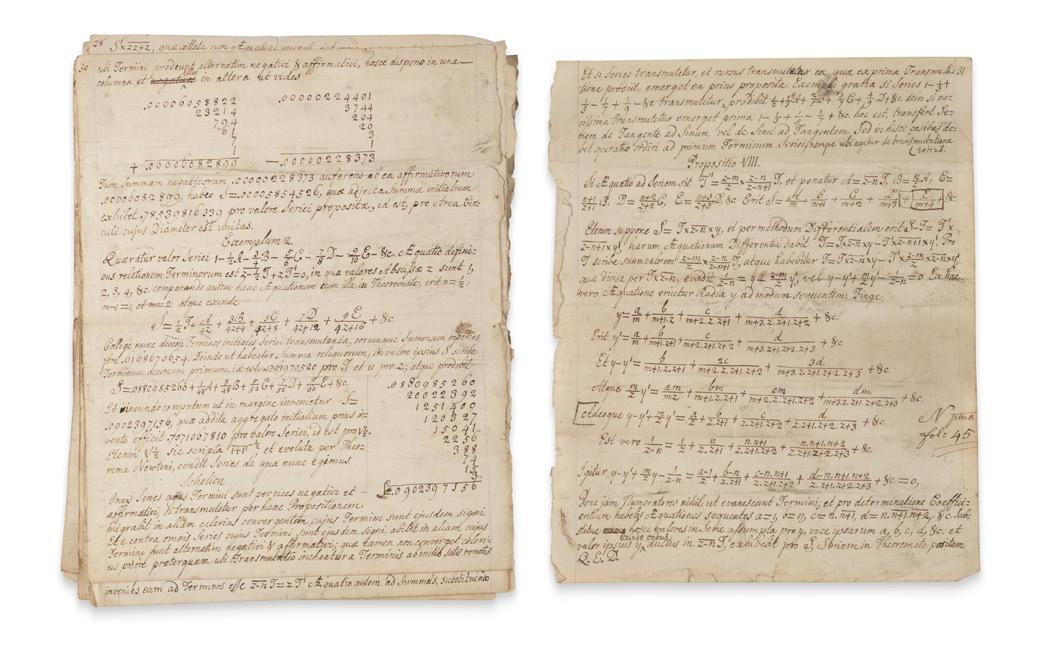 28 S'×zz+z, quæ collata cum Æquatione
30 ubi Termini prodeunt alternatim negativi & affirmativi, hosce dispono in una
columna et illos in altera ut vides
.00000058822 .0000224401
23214 3744
794 204
61 20
7 3
1 1
+ .00000082899 — .0000228373
Tum Summam negativorum .0000228373 auferens ab ea affirmativorum
.00000082899, habeo S=
exhibet .78539816339 pro valore Seriei propositæ, id est, pro Area Cir-
culi cujus Diameter est unitas.
Exemplum 2.
Quæratur valor Seriei 1-½A-¾B-⅚C-⅞D-9/10E-&c. Æquatio defini-
ens relationem Terminorum est z-½T+zT'=0, in qua valores Abscissæ z sunt 1,
2, 3, 4, &c. comparando autem hanc Æquationem cum illa in Theoremate, erit n=½,
m-1=1, et m=2 atque exinde
S=½T+A/4z+3B/4z+4+5C/4z+8+7D/4z+12+9E/4z+16+&c.
Collige nunc decem Terminos initiales Seriei transmutandæ, eorumque Summam
Deinde ut habeatur Summa reliquorum, in valore ipsius S scribe
Terminum undecimum pro T et 11 pro z; atque prodibit
S=.0880985260+1/44A+3/48B+5/52C+7/56D+9/60E+&c. .0880985260
20022392
Et ineundo computum ut in margine invenietur S= 1251400
.0902397156, quæ addita aggregato initialium prius in- 120327
vento efficit .7071067810 pro valore Seriei, id est pro √½. 15041
Etenim √½ sic scripta et evoluta per Theo- 2256
rema Newtoni, evadit Series de qua nunc egimus 388
Scholion. 74
Omnis Series cujus Termini sunt per vices negativi et
affirmativi, si transmutetur per hanc Propositionem .0902397156
migrabit in aliam celerius convergentem, cujus Termini sunt ejusdem signi.
Et e contra omnis Series cujus Termini sunt ejusdem signi abibit in aliam cujus
Termini sunt alternatim negativi & affirmativi; quæ tamen non converget celeri-
us priore præterquam ubi Transmutatio inchoatur a Terminis ab initio satis remotis.
invenies eam ad Terminos esse z-n T=zT'. Æquatio autem ad Summas, substituendo
Et si Series transmutetur, et rursus transmutetur ea quæ ex prima Transmuta- 31
tione prodiit, emerget ea prius proposita. Exempli gratia si Series 1-⅓+
⅕-1/7+1/9-&c transmutetur, prodibit
vissima transmutetur emerget prima 1-⅓+⅕-1/7+&c. hoc est, transfert Se-
riem de Tangente ad Sinum vel de Sinu ad Tangentem. Sed in hisce casibus de-
bet operatio ordiri ad primum Terminum Seriei
Propositio VIII.
Si Æquatio ad Seriem sit T'=z-m/z × z-n/z-n+1 T, et ponatur A=z-n T, B=n/z A, C=
n+1/z+1 B, D=n+2/z+2 C, E=n+3/z+3 D, &c Erit S=A/m+B/m+1+C/m+2+D/m+3+E/m+4+&c
Etenim suppone S=T×z-n×y, et per methodum Differentialem erit S-T=T'×
z-n+1×y'; harum Æquationum Differentia dabit T=T×z-n×y-T'×z-n+1×y'. Pro
T' scribe suum valorem z-m/z×z-n/z-n+1 T, atque habebitur T=T×z-n×y-T×z-m/z×z-n×y'
qua divisa per T×z-n, evadit 1/z-n=y-z-m/z y', vel y-y'+m/z y'-1/z-n=0. Ex hac
vero Æquatione eruetur Radix y ad modum sequentem. Finge
y=a/m+b/m+1.z+c/m+2.z.z+1+d/m+3.z.z+1.z+2+&c.
Erit y'=a/m+b/m+1.z+1+c/m+2.z+1.z+2+d/m+3.z+1.z+2.z+3+&c.
Et y-y'=b/m+1.z.z+1+2c/m+2.z.z+1.z+2+3d/m+3.z.z+1.z+2.z+3+&c.
Atque m/z y'=am/mz+bm/m+1.z.z+1+cm/m+2.z.z+1.z+2+dm/m+3.z.z+1.z+2.z+3+&c.
adeoque y-y'+m/z y'=a/z+b/z.z+1+c/z.z+1.z+2+d/z.z+1.z+2.z+3+&c.
N prima
fol: 45
Est vero 1/z-n=1/z+n/z.z+1+n.n+1/z.z+1.z+2+n.n+1.n+2/z.z+1.z+2.z+3+&c.
Igitur y-y'+m/z y'-1/z-n=a-1/z+b-n/z.z+1+c-n.n+1/z.z+1.z+2+d-n.n+1.n+2/z.z+1.z+2.z+3+&c=0,
Pone jam Numeratores nihil, ut evanescant Termini, et pro determinatione Coeffici-
entum habebis Æquationes sequentes a=1, b=n, c=n.n+1, d=n.n+1.n+2, &c. Sub-
stitue hosce valores in Serie assumpta pro y, vice ipsarum a, b, c, d, &c. et
valor ipsius y, ductus in z-n T, exhibebit pro S, Seriem in Theoremate positam
Q. E. D.